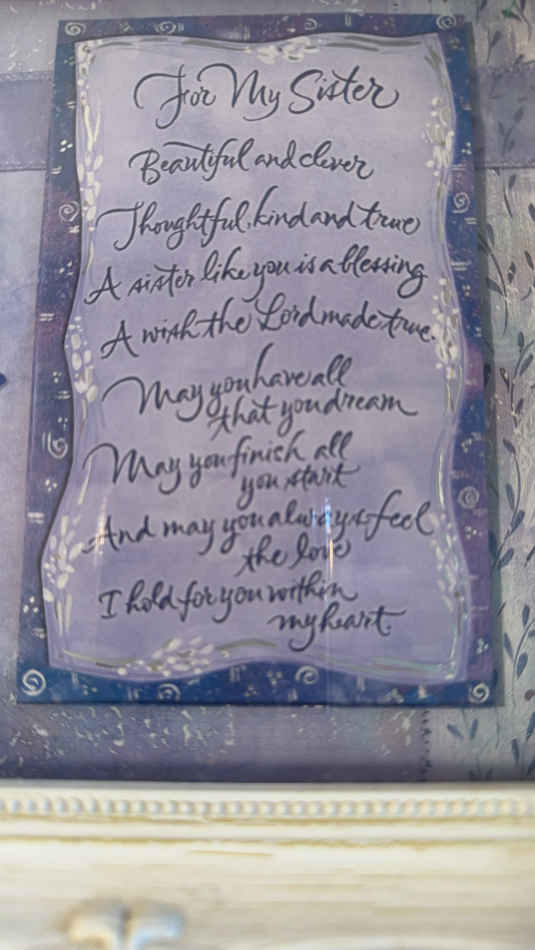 For My Sister
Beautiful and clever
Thoughtful, kind and true
A sister like you is a blessing
A wish the Lord made true.
May you have all
that you dream
May you finish all
you start
And may you always feel
the love
I hold for you within
my heart.